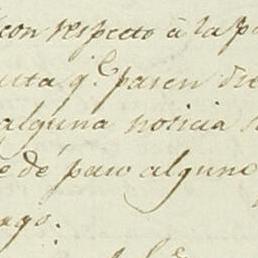 con respecto à la p
utta q.e pasen die
alguna noticia
e dé paso alguno
ago.